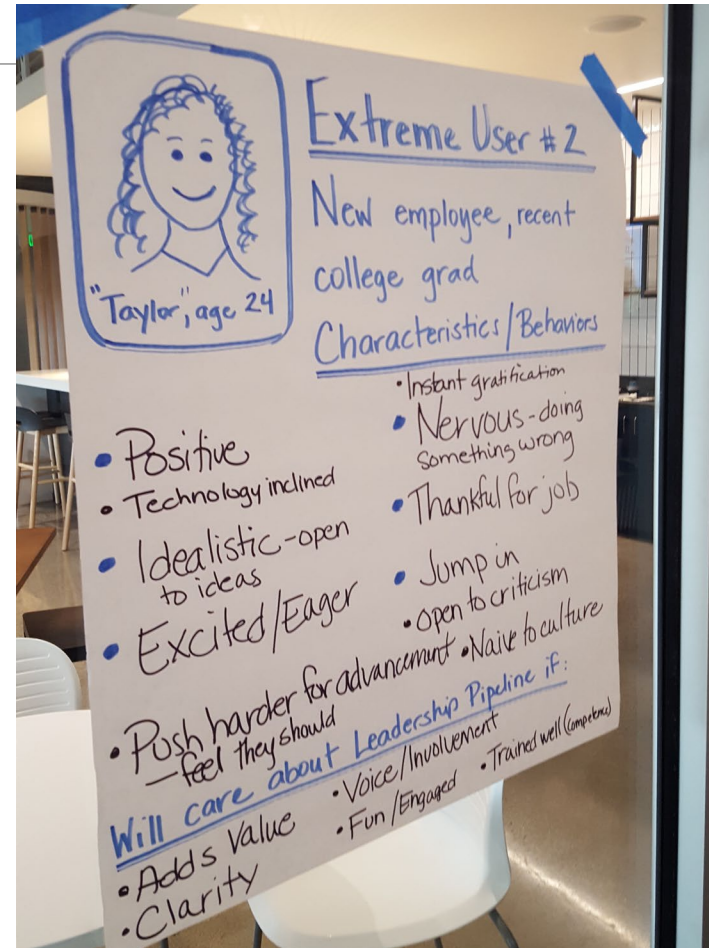 Extreme User #2
New employee, recent
college grad
"Taylor", age 24
Characteristics/Behaviors
• Positive
• Technology inclined
• Idealistic-open
to ideas
• Excited/Eager
• Push harder for advancement
— feel they should
• Instant gratification
• Nervous-doing
something wrong
• Thankful for job
• Jump in
• Open to criticism
• Naive to culture
Will care about Leadership Pipeline if:
• Adds Value
• Clarity
• Voice/Involvement
• Fun/Engaged
• Trained well (competence)